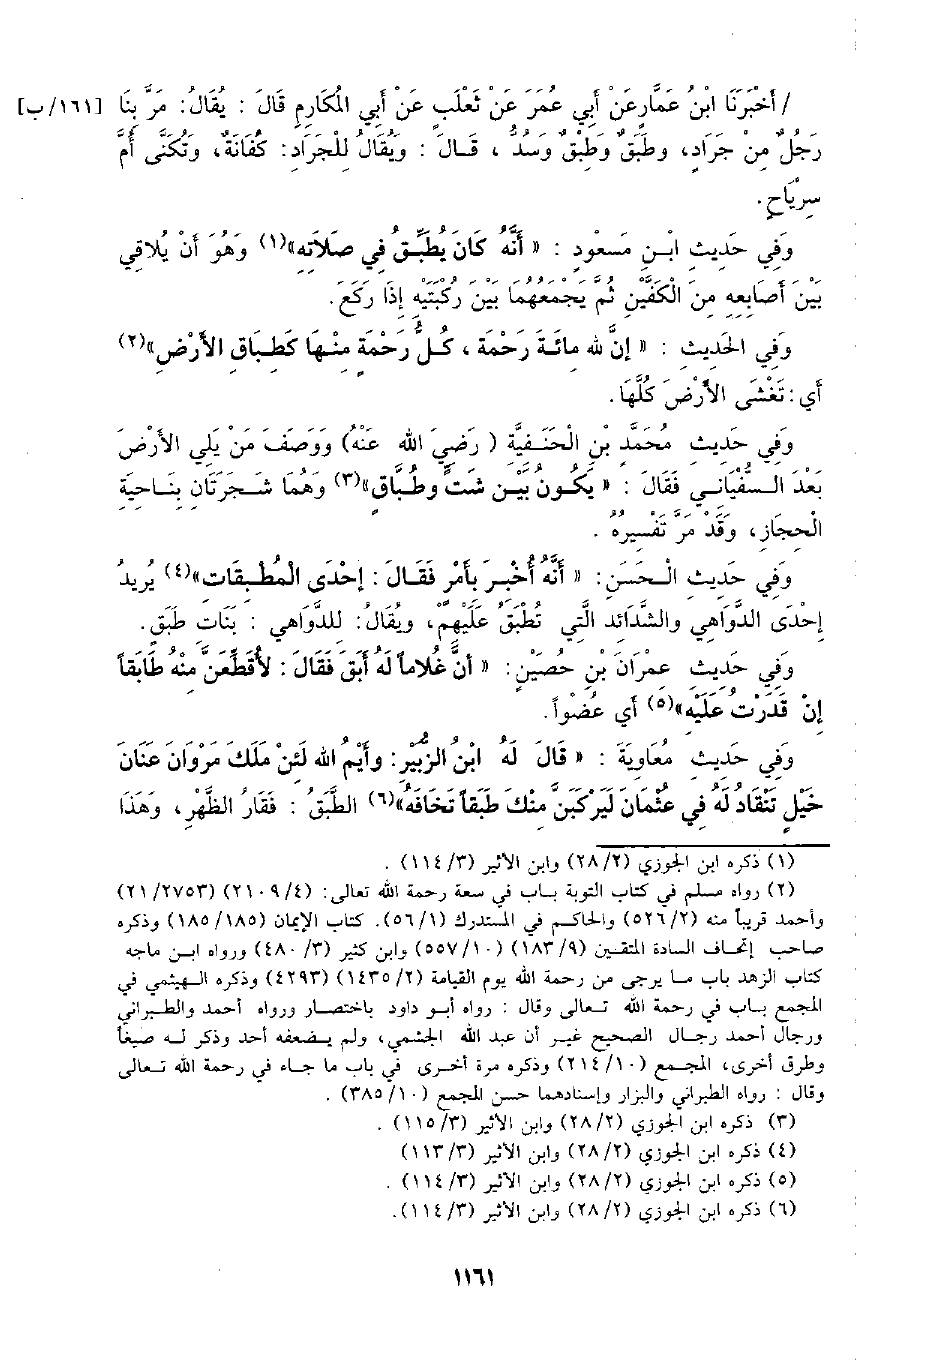 / أَخْبَرَنَا ابْنُ عَمَّارٍ عَنْ أَبِي عُمَرَ عَنْ ثَعْلَبٍ عَنْ أَبِي الْمَكَارِمِ قَالَ : يُقَالُ: مَرَّ بِنَا [١٦١/ب]
رَجُلٌ مِنْ جَرَادٍ، وطَبَقٌ وَطِبْقٌ وَسُدٌّ ، قَـالَ : وَيُقَالُ لِلْجَرَادِ: كُفَانَةٌ، وَتُكَنَّى أُمَّ
سِرْيَاحٍ.
وَفِي حَدِيثِ ابْـنِ مَسْعُودٍ : « أَنَّهُ كَانَ يُطَبِّقُ فِي صَلَاتِهِ»(١) وَهُوَ أَنْ يُلَاقِي
بَيْنَ أَصَابِعِهِ مِنَ الْكَفَّيْنِ ثُمَّ يَجْمَعُهُمَا بَيْنَ رُكْبَتَيْهِ إِذَا رَكَعَ.
وَفِي الحَدِيثِ : « إِنَّ لله مِائَـةَ رَحْمَة ، كُـلُّ رَحْمَة مِنْـهَا كَطِـبَاقِ الأَرْضِ»(٢)
أَي : تَغْشَى الأَرْضَ كُلَّهَا.
وَفِي حَدِيثِ مُحَمَّدِ بْنِ الْحَنَـفِيَّةِ ( رَضِيَ الله عَنْهُ) وَوَصَفَ مَنْ يَلِي الأَرْضَ
بَعْدَ الـسُّفْيَانِـي فَقَالَ : « يَكُـونُ بَيْـنَ شَتٍّ وطُـبَّاقٍ»(٣) وَهُمَا شَـجَرَتَانِ بِنَـاحِيَةِ
الْحِجَازِ، وَقَدْ مَرَّ تَفْسِيرُهُ .
وَفِي حَدِيثِ الْـحَسَنِ : « أَنَّهُ أُخْبِـرَ بِأَمْرٍ فَقَـالَ : إِحْدَى المُطْـبِقَات»(٤) يُرِيدُ
إِحْدَى الدَّوَاهِي والشَّدَائِدِ الَّتِي تُطْبِقُ عَلَيْهِمْ، ويقَالُ: لِلدَّوَاهِي : بَنَاتِ طَبَقٍ.
وَفِي حَدِيثِ عِمْرَانَ بْنِ حُصَيْنٍ: « أَنَّ غُلَاماً لَهُ أَبَقَ فَقَالَ : لأُقَطِّعَنَّ مِنْهُ طَابَقاً
إِنْ قَدَرْتُ عَلَيْه»(٥) أَي عُضْواً.
وَفِي حَدِيثِ مُعَاوِيَةَ : « قَالَ لَهُ ابْنُ الزُّبَيْرِ: وأَيْمُ الله لَئِنْ مَلَكَ مَرْوَان عَنَانَ
خَيْلٍ تَنْقَادُ لَهُ فِي عُثْمَانَ لَيَرْكَبَنَّ مِنْكَ طَبَقاً تَخَافَهُ»(٦) الطَّبَقُ : فَقَارُ الظَّهْرِ ، وَهَذَا
(١) ذكره ابن الجوزي (٢٨/٢) وابن الأثير (١١٤/٣) .
(٢) رواه مسلم في كتاب التوبة بـاب في سعة رحمة الله تعالى: (٢١٠٩/٤) (٢١/٢٧٥٣)
وأحمد قريباً منه (٥٢٦/٢) والحاكـم في المستدرك (٥٦/١). كتاب الإيمان (١٨٥/١٨٥) وذكره
صاحب إتحاف السادة المتقين (١٨٣/٩) (٥٥٧/١٠) وابن كثير (٤٨٠/٣) ورواه ابـن ماجه
كتاب الزهد باب مـا يرجى من رحمة الله يوم القيامة (١٤٣٥/٢) (٤٢٩٣) وذكره الـهيثمي في
المجمع بـاب في رحمة الله تعـالى وقال : رواه أبـو داود باختصـار ورواه أحمد والطبراني
ورجال أحمد رجـال الصحيح غيـر أن عبد الله الجشمي، ولم يـضعفه أحد وذكر لـه صيغاً
وطرق أخرى، المجمـع (٢١٤/١٠) وذكره مرة أخـرى في باب ما جـاء في رحمة الله تعـالى
وقال : رواه الطبراني والبزار وإسنادهما حسن المجمع (٣٨٥/١٠) .
(٣) ذكره ابن الجوزي (٢٨/٢) وابن الأثير (١١٥/٣) .
(٤) ذكره ابن الجوزي (٢٨/٢) وابن الأثير (١١٣/٣)
(٥) ذكره ابن الجوزي (٢٨/٢) وابن الأثير (١١٤/٣) .
(٦) ذكره ابن الجوزي (٢٨/٢) وابن الأثير (١١٤/٣).
١١٦١